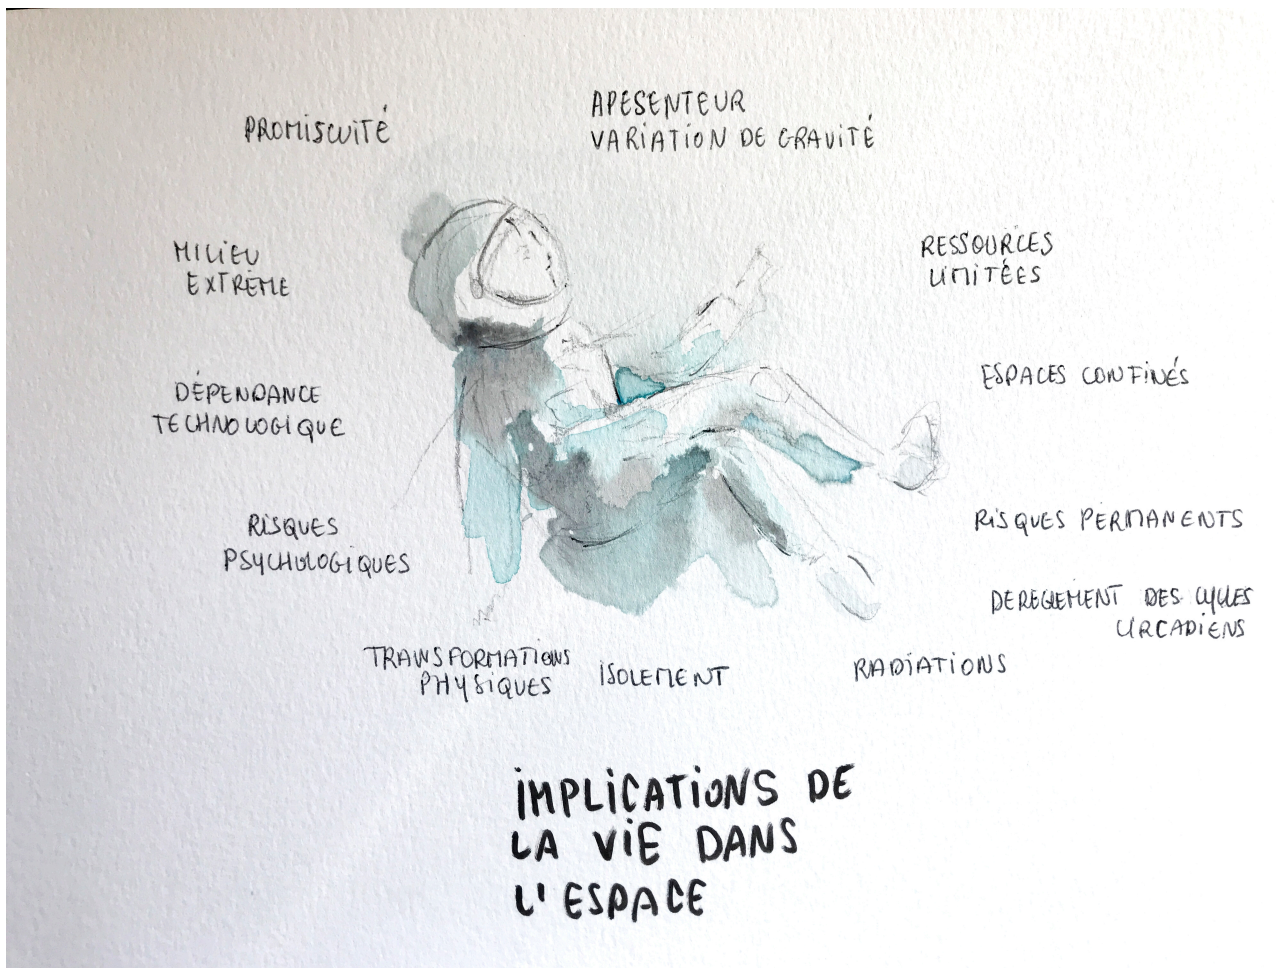 PROMISCUITÉ
APESENTEUR
VARIATION DE GRAVITÉ
MILIEU
EXTRÊME
RESSOURCES
LIMITÉES
DÉPENDANCE
TECHNOLOGIQUE
ESPACES CONFINÉS
RISQUES
PSYCHOLOGIQUES
RISQUES PERMANENTS
DEREGLEMENT DES CYCLES
CIRCADIENS
TRANSFORMATIONS
PHYSIQUES
ISOLEMENT
RADIATIONS
IMPLICATIONS DE
LA VIE DANS
L'ESPACE